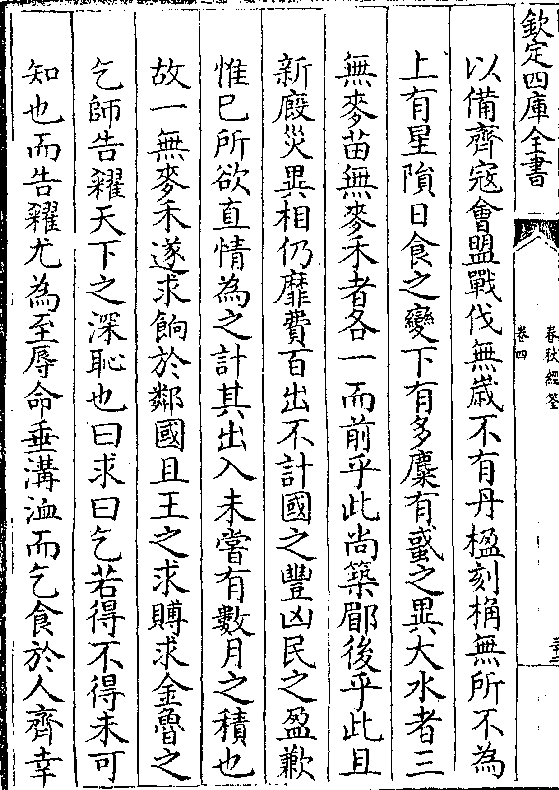 欽定四庫全書
春秋經筌
卷四
以備齊寇會盟戰伐無歲不有丹楹刻桷無所不為
上有星隕日食之變下有多麋有蜮之異大水者三
無麥苗無麥禾者各一而前乎此尚築郿後乎此且
新廄災異相仍靡費百出不計國之豐凶民之盈歉
惟己所欲直情為之計其出入未嘗有數月之積也
故一無麥禾遂求餉於鄰國且王之求賻求金魯之
乞師告糴天下之深恥也曰求曰乞若得不得未可
知也而告糴尤為至辱命垂溝洫而乞食於人齊幸